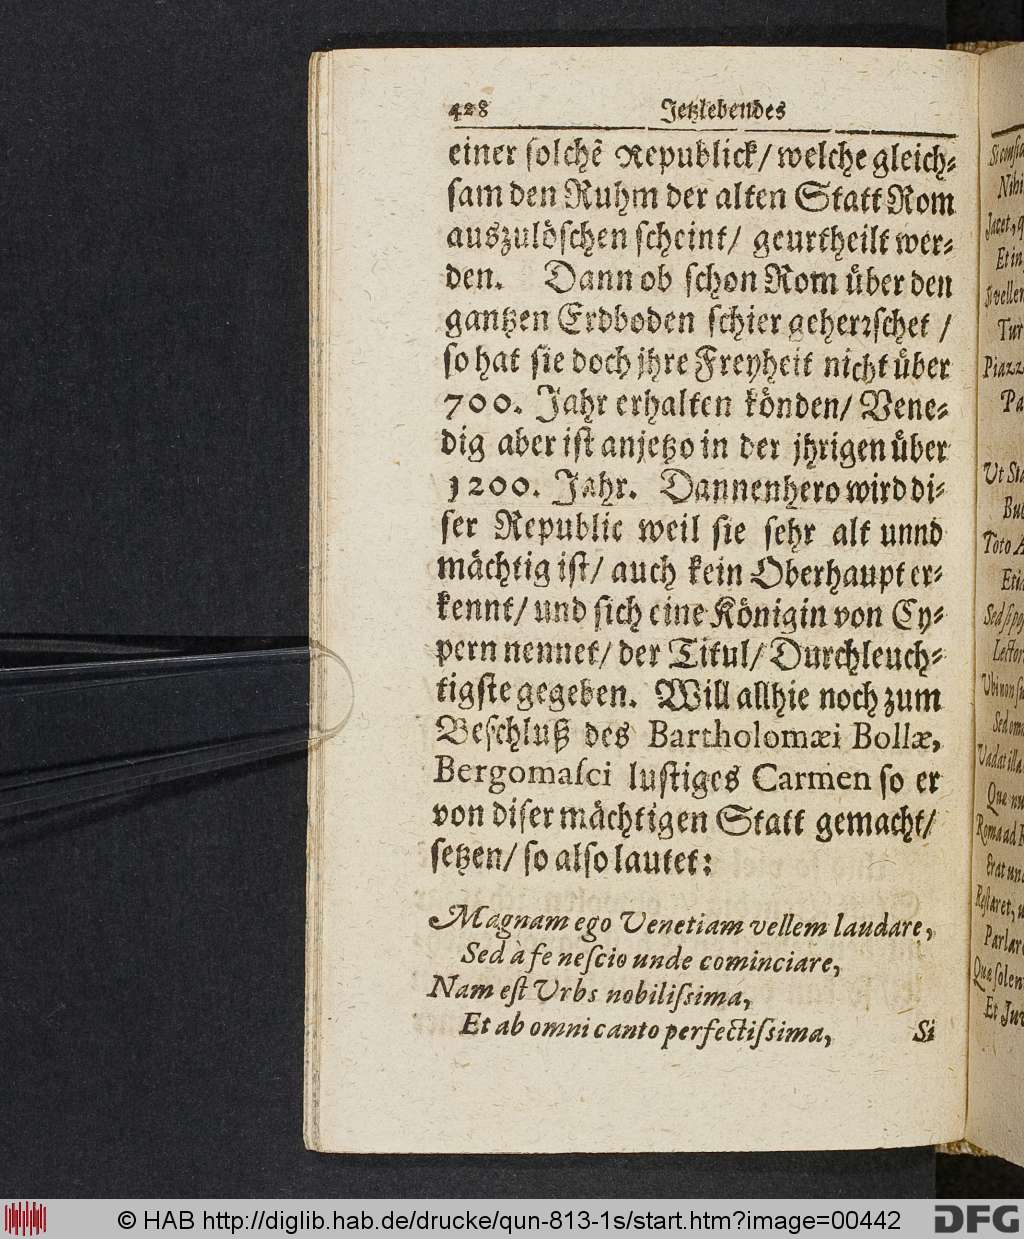 428 Jetzlebendes
einer solchẽ Republick/ welche gleich-
sam den Ruhm der alten Statt Rom
auszulöschen scheint/ geurtheilt wer-
den. Dann ob schon Rom über den
gantzen Erdboden schier geherꝛschet /
so hat sie doch jhre Freyheit nicht über
700. Jahr erhalten könden/ Vene-
dig aber ist anjetzo in der jhrigen über
1200. Jahr. Dannenhero wird di-
ser Republic weil sie sehr alt unnd
mächtig ist/ auch kein Oberhaupt er-
kennt/ und sich eine Königin von Cy-
pern nennet/ der Titul/ Durchleuch-
tigste gegeben. Will allhie noch zum
Beschluß des Bartholomæi Bollæ,
Bergomaſci lustiges Carmen so er
von diser mächtigen Statt gemacht/
setzen/ so also lautet:
Magnam ego Venetiam vellem laudare,
Sed à fe neſcio unde cominciare,
Nam eſt Urbs nobiliſsima,
Et ab omni canto perfectiſsima,
Si
Nihi
Jacet, q
Et in
Si vellem
Tur
Piazz
Pa
Ut Sta
Buc
Toto A
Sed
Lector
Ubi non
Sed om
Vadat illa
Quæ nu
Roma ad
Erat un
Reſtaret, u
Parlar
Quæ ſolen
Et Juv
© HAB http://diglib.hab.de/drucke/qun-813-1s/start.htm?image=00442
DFG